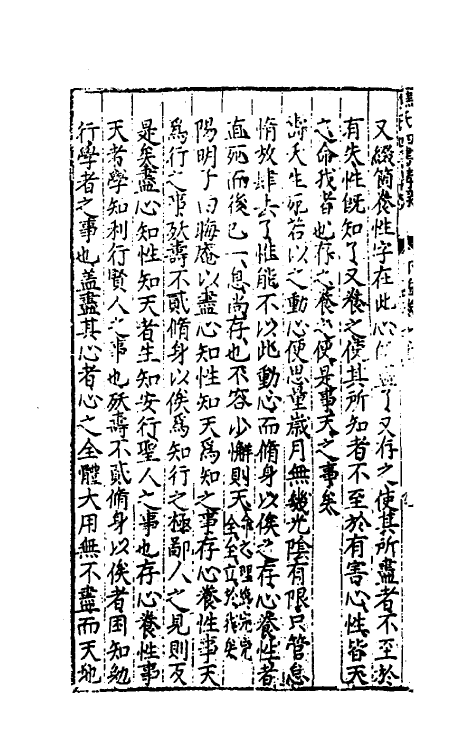 又綴箇養性字在此心既盡了又存之使其所盡者不至於
有失性既知了又養之使其所知者不至於有害心性皆天
之命我者也存之養之便是事天之事矣
壽夭生死若以之動心便思量歲月無幾光陰有限只管怠
惰放肆去了惟能不以此動心而脩身以俟之存心養性者
直死而後已一息尚存也不容少懈則天命之理我完完全全至立於我矣
陽明子曰晦庵以盡心知性知天爲知之事存心養性事天
爲行之事殀壽不貳脩身以俟爲知行之極鄙人之見則反
是矣盡心知性知天者生知安行聖人之事也存心養性事
天者學知利行賢人之事也殀壽不貳脩身以俟者困知勉
行學者之事也盖盡其心者心之全體大用無不盡而天地